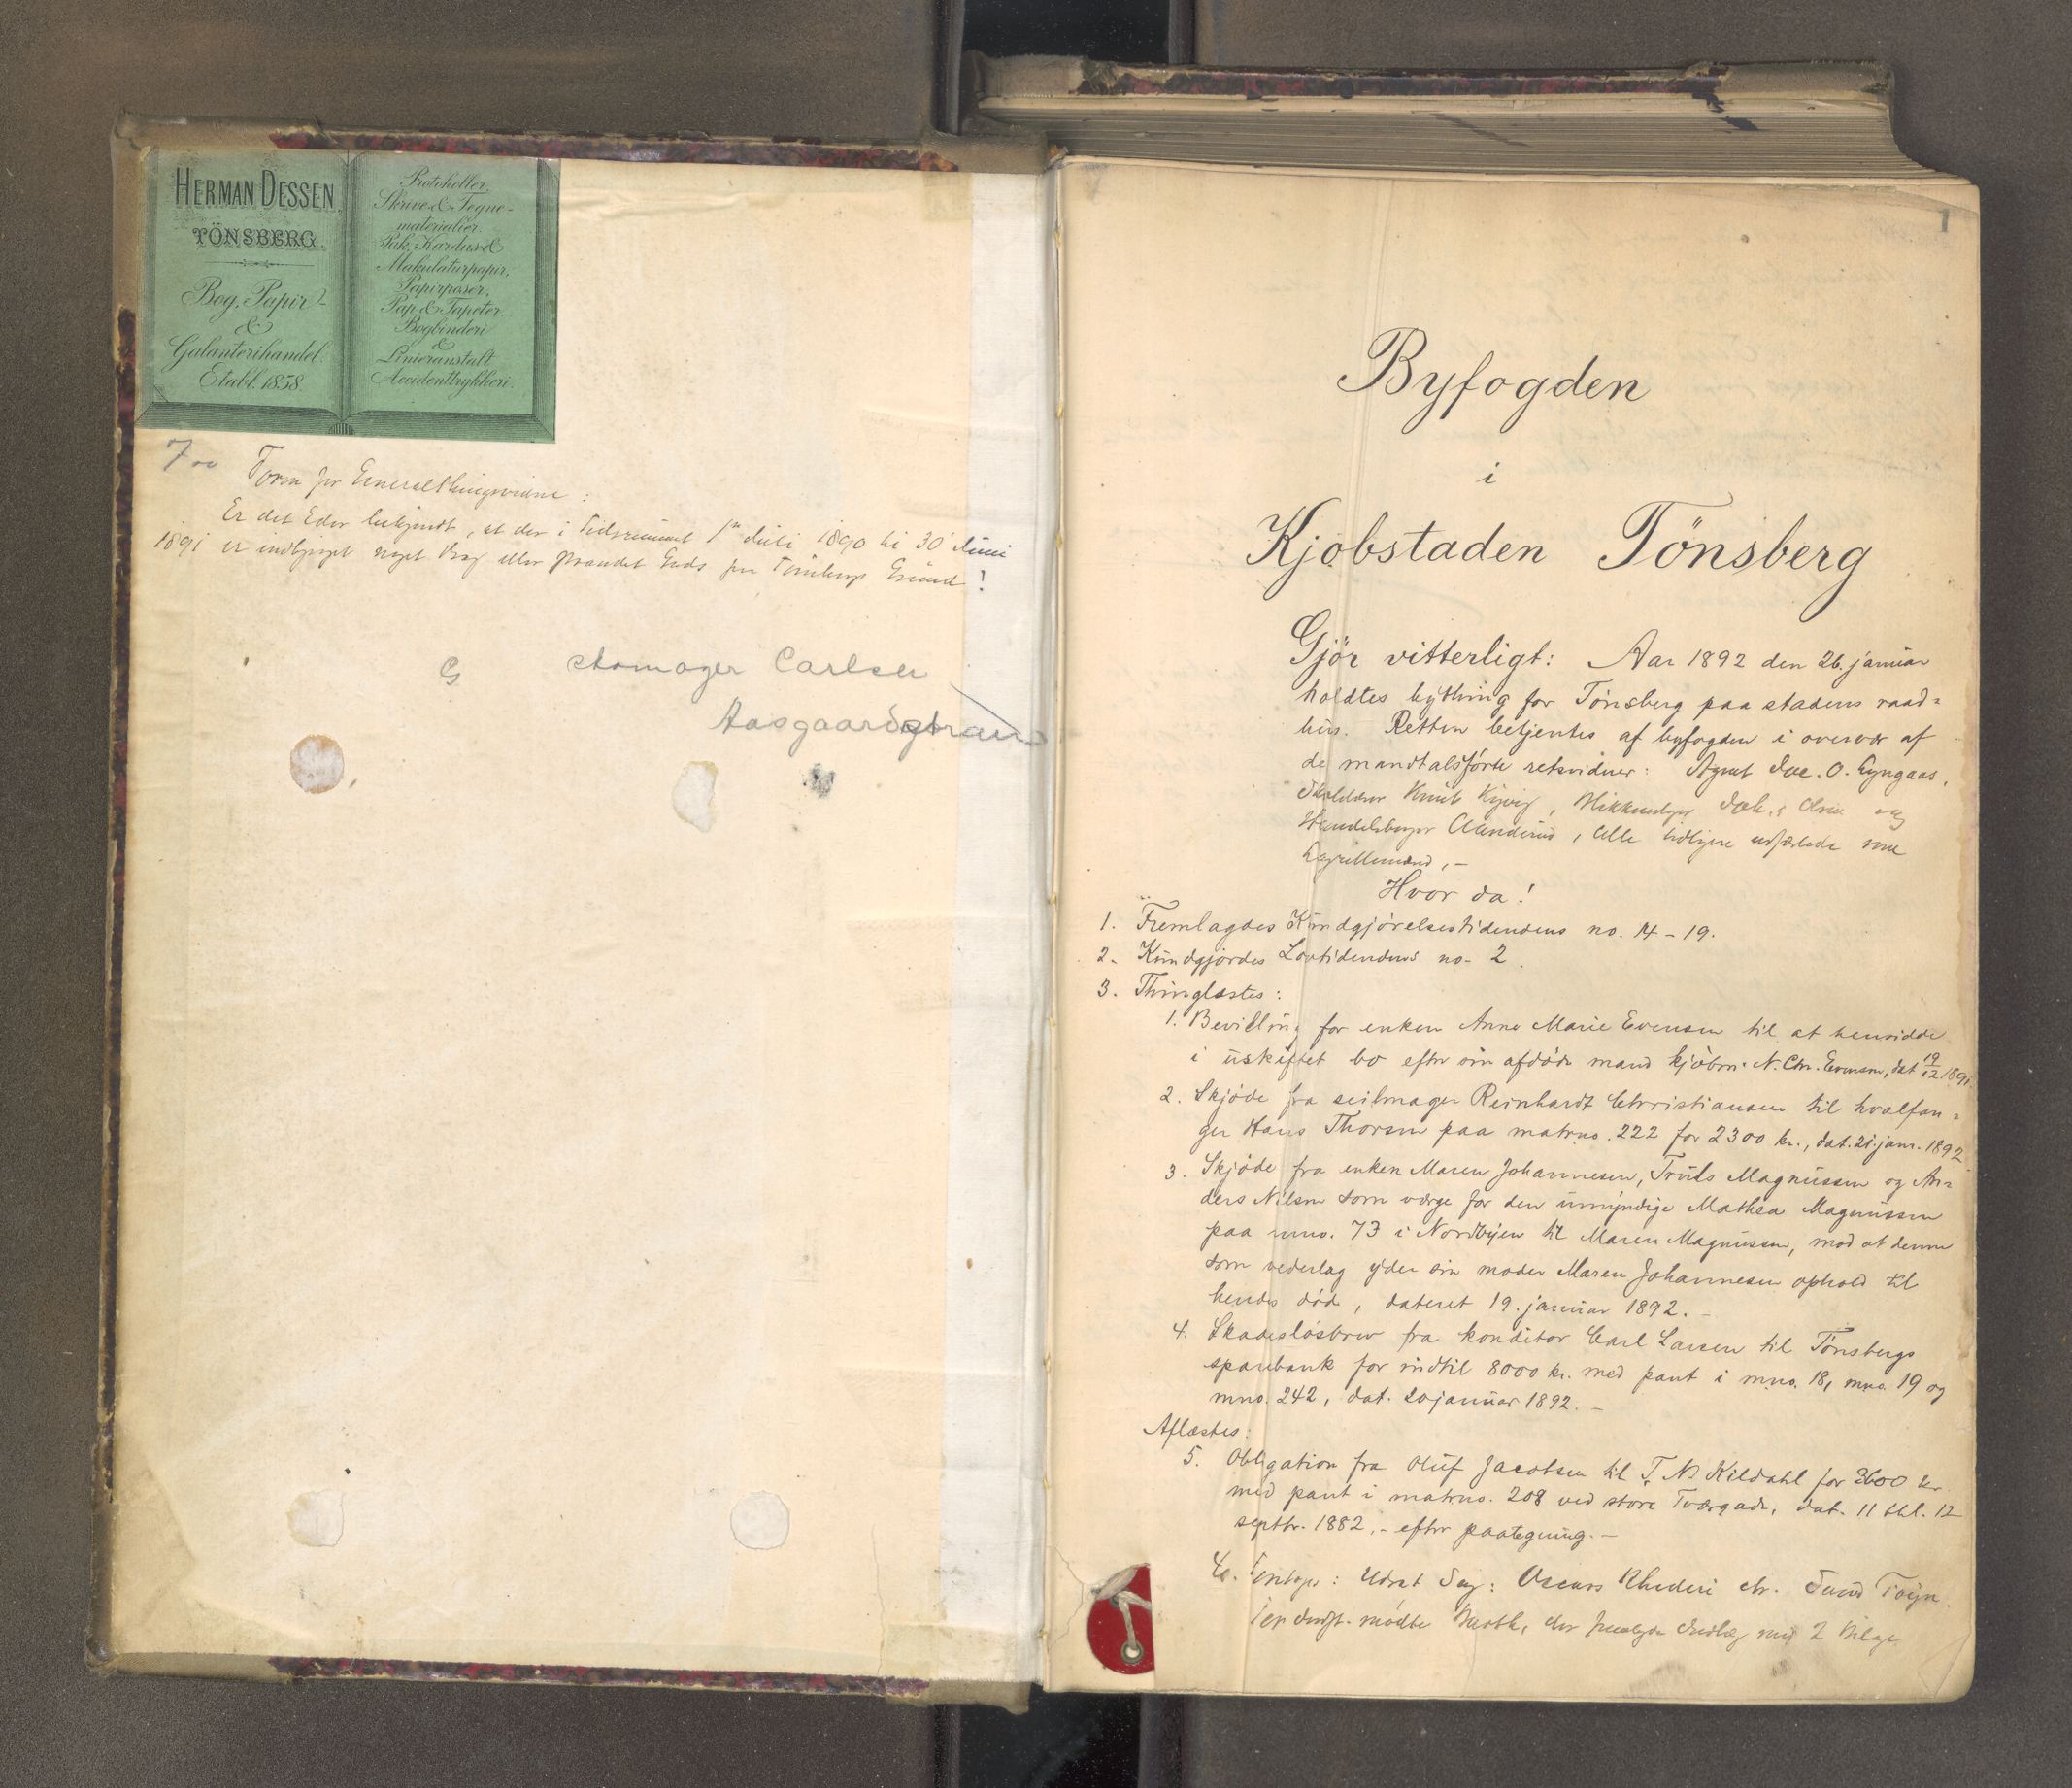 HERMAN DESSEN
TÖNSBERG
Bog, Papir
&
Galanterihandel.
Etabl. 1858.
Protokoller,
Skrive & Tegne-
materialier.
Pak, Kardus &
Makulaturpapir,
Papirposer,
Pap & Tapeter.
Bogbinderi
&
Linieranstalt
Accidenttrykkeri.
Form for Generalthingsvidne:
Er det Eder bekjendt, at der i Tidsrummet 1ste Juli 1890 til 30 Juni
1891 er indbjerget noget Vrag eller strandet Gods paa Tönsbergs Grund?
G
Skomager Carlsen
Aasgaardstrand
1
Byfogden
i
Kjøbstaden Tönsberg
Gjör vitterligt: Aar 1892 den 26. januar
holdtes bything for Tönsberg paa stadens raad-
hus. Retten betjentes af byfogden i overvær af
de mandtalsförte retsvidner: Agent Jac. O.
Knut
Handelsborger, alle tidligere som
Lagrettemænd,-
Hvor da!
1. Fremlagdes Kundgjörelsestidendens no. 14-19.
2. Kundgjordes Lovtidendens no. 2.
3. Thinglæstes:
1. Bevilling for enken Anne Marie Evensen til at hensidde
i uskiftet bo efter sin afdöde mand kjöbm. N. Chr. Evensen, dat 19/12 1891.
2. Skjöde fra seilmager Reinhardt Christiansen til hvalfan-
ger Hans Thorsen paa matrno. 222 for 2300 kr., dat. 21. janr. 1892.
3. Skjöde fra enken Maren Johannesen, Truls Magnussen og An-
ders Nilsen som værge for den umyndige Mathea Magnussen
paa mno. 73 i Nordbyen til Maren Magnussen, mod at denne
som vederlag yder sin moder Maren Johannesen ophold til
hendes död, dateret 19. januar 1892. -
4. Skadeslösbrev fra konditor Carl Larsen til Tönsbergs
sparebank for indtil 8000 kr. med pant i mno. 18, mno. 19 og
mno. 242, dat. 20 januar 1892. -
Aflæstes:
5. Obligation fra Oluf Jacobsen til T. N. Kildahl for 3600 kr.
med pant i matrno. 208 ved store Tværgade, dat. 11 thl. 12
septbr. 1882,- efter paategning. -
4. Foretoges: Udsat Sag: Oscars Rhederi ctr. Svend Foyn.
mödte der Indlæg med 2 Bilag